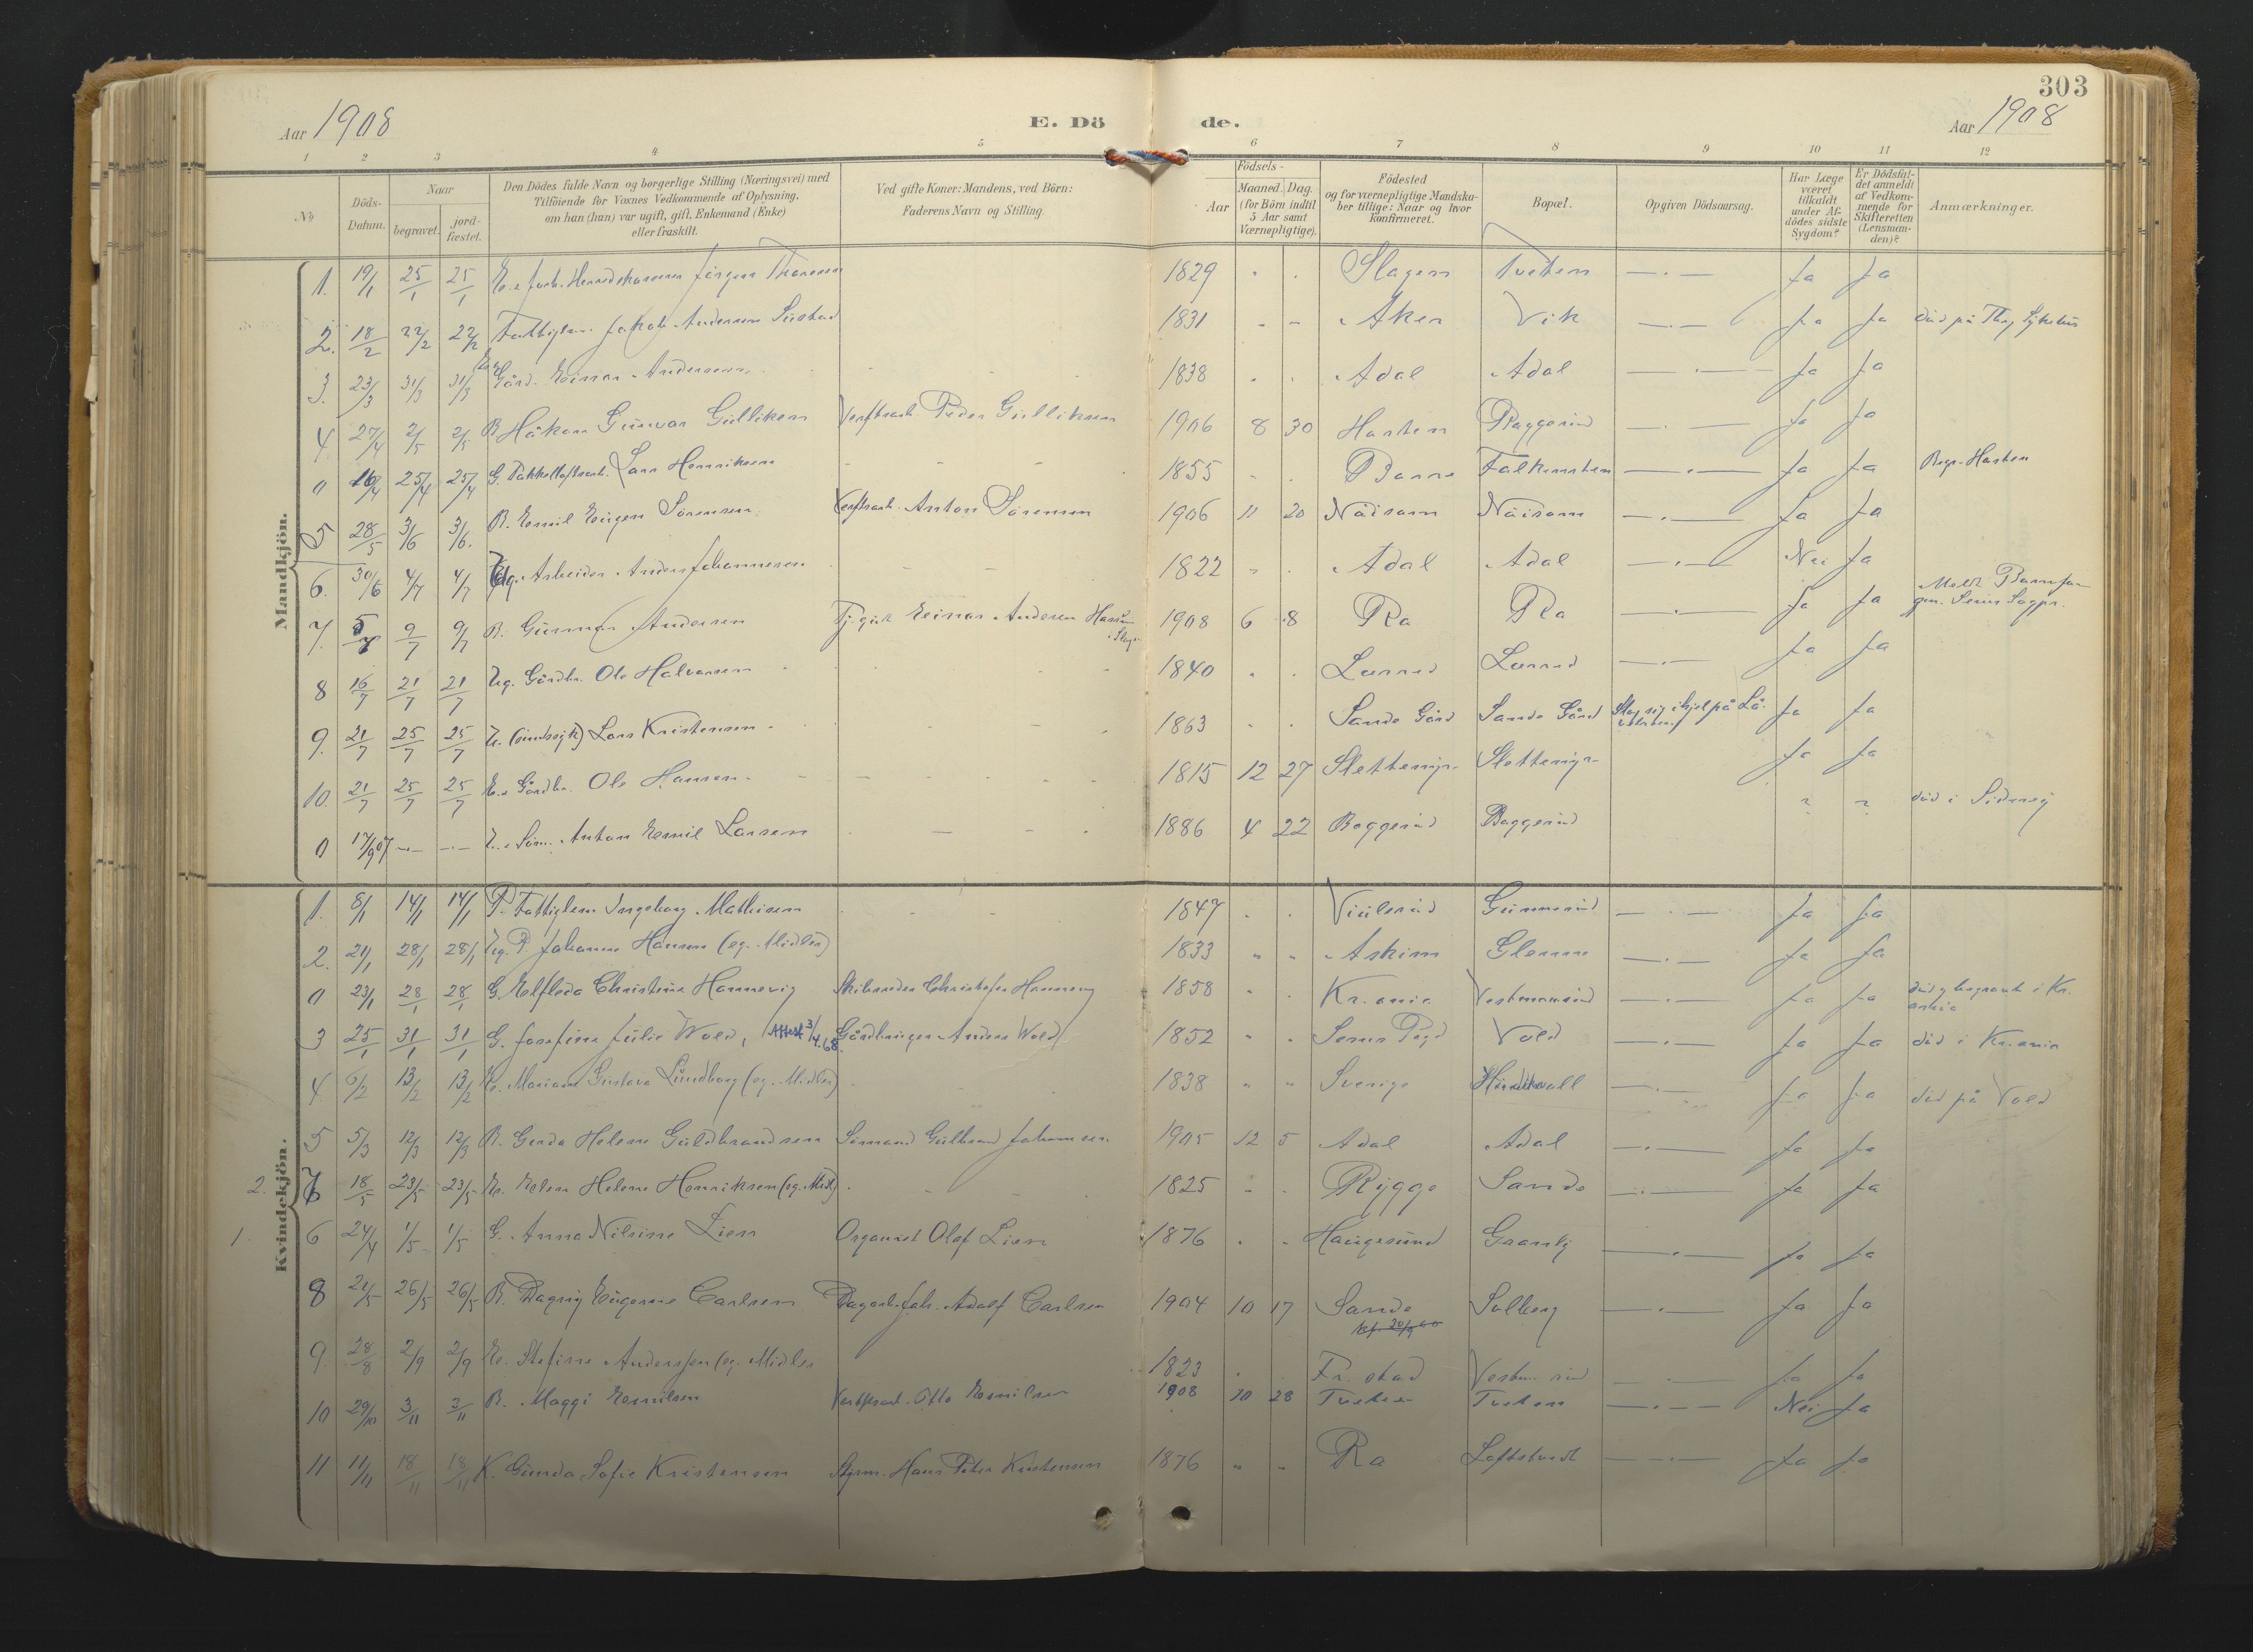 303
Aar 1908
E. Dö de.
Aar 1908
1 2 3 4 5 6 7 8 9 10 11 12
No
Döds-Datum.
Naar
begravet.
jord-fæstet.
Den Dödes fulde Navn og borgerlige Stilling (Næringsvei) med
Tilföiende for Voxnes Vedkommende af Oplysning,
om han (hun) var ugift, gift, Enkemand (Enke)
eller fraskilt.
Ved gifte Koner: Mandens, ved Börn:
Faderens Navn og Stilling.
Födsels-
Aar
Maaned. Dag.
(for Börn indtil
5 Aar samt
Værnepligtige).
Födested
og for værnepligtige Mandska-
ber tillige: Naar og hvor
konfirmeret.
Bopæl.
Opgiven Dödsaarsag.
Har Læge
været
tilkaldt
under Af-
dödes sidste
Sygdom?
Er Dödsfal-
det anmeldt
af Vedkom-
mende for
Skifteretten
(Lensman-
den)?
Anmærkninger.
Mandkjön.
1. 19/1 25/1 25/1 Jörgen Thoresen 1829 Slagen Tveten Ja Ja
2. 18/2 22/2 22/2 Jakob Andersen 1831 Aker Vik Ja Ja död på
3. 23/3 31/3 31/3 Gård. Einar Andersen 1838 Adal Adal Ja Ja
4 27/4 2/5 2/5 B. Håkon Gunvar Gulliksen Verftsarb. Peder Gulliksen 1906 8 30 Horten Baggerud Ja Ja
0 16/4 25/4 25/4 G. Lars Henriksen 1855 Borre Falkensten Ja Ja Horten
5 28/5 3/6 3/6. B. Emil Eugen Sörensen Verftsarb. Anton Sörensen 1906 11 20 Ja Ja
6. 30/6 4/7 4/7 Ug. Arbeider Anders Johannesen 1822 Adal Adal Nei Ja
7. 5/7 9/7 9/7 B. Gunnar Andersen Einar Andersen 1908 6 8 Ra Ra Ja Ja
8 16/7 21/7 21/7 Ug. Gårdbr. Ole Halvorsen 1840 Ja Ja
9. 21/7 25/7 25/7 U. (sindssyk) Lars Kristensen 1863 Sande Gård Sande Gård Slog sig ihjel på Ja Ja
10. 21/7 25/7 25/7 E. Gårdbr. Ole Hansen 1815 12 27 Slettemyr Slettemyr Ja Ja
0 17/9 07 U. Söm. Anton Emil Larsen 1886 4 22 Baggerud Baggerud ? ? död i Sidney
Kvindekjön.
1. 8/1 14/1 14/1 P. Fattiglem Ingeborg Mathisen 1847 Gunnerud Ja Ja
2. 21/1 28/1 28/1 Ug. P. Johanne Hansen (eg. Midler) 1833 Askim Glenne Ja Ja
0 23/1 28/1 28/1 G. Elfleda Christine Hannevig Skibsreder Christofer Hannevig 1858 Kr.ania Ja Ja död og begravet i Kr.
ania
3 25/1 31/1 31/1 G. Josefine Julie Wold, Attest 3/4.68. Gårdbruger Anders Wold 1852 Sems Vold Ja Ja död i Kr.ania
4 6/2 13/2 13/2 E. Mariane Gustava Lundborg (eg. Midler) 1838 Sverige Ja Ja död på Vold
5 5/3 12/3 12/3 B. Gerda Helene Guldbrandsen Sömand Gulbrand Johannesen 1905 12 5 Adal Adal Ja Ja
2. 7 18/5 23/5 23/5 E. Elen Helene Henriksen (eg. Mid.) 1825 Rygge Sande Ja Ja
1. 6 24/4 1/5 1/5 G. Anna Nilsine Lien Organist Olaf Lien 1876 Haugesund Granly Ja Ja
8 21/5 26/5 26/5 B. Dagny Eugenie Carlsen Dagarb. Joh. Adolf Carlsen 1904 10 17 Sande Solberg Ja Ja
9. 28/8 2/9 2/9 E. Stefine Anderssen (eg. Midler 1823 Fr.stad Ja Ja
10 29/10 3/11 3/11 B. Maggi Emilsen Verftsarb. Otto Emilsen 1908 10 28 Tveten Tveten Nei Ja
11 11/11 18/11 18/11 K. Gunda Sofie Kristensen Styrm. Hans Peter Kristensen 1876 Ra Loftstvedt Ja Ja